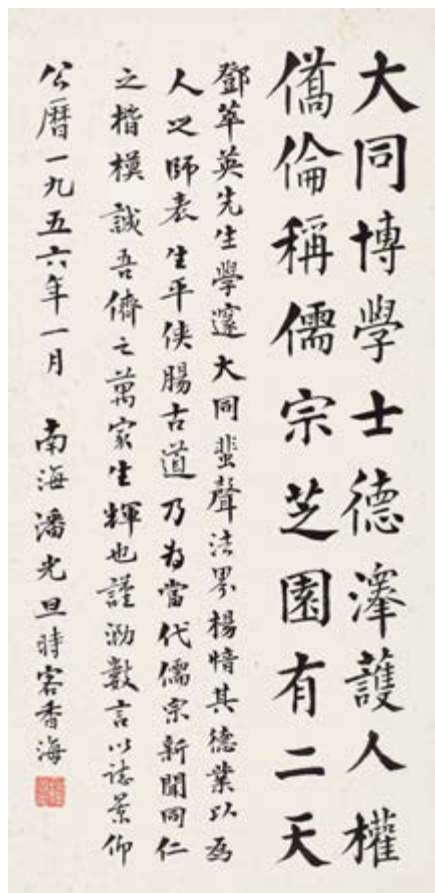 大同博學士德澤護人權
儁倫稱儒宗芝園有二天
鄧萃英先生學邃大同蜚聲法界楊愔其德業以為
人之師表生平俠腸古道乃為當代儒宗新聞同仁
之楷模誠吾儕之萬家生輝也謹泐數言以誌景仰
公曆一九五六年一月 南海潘光旦時客香海